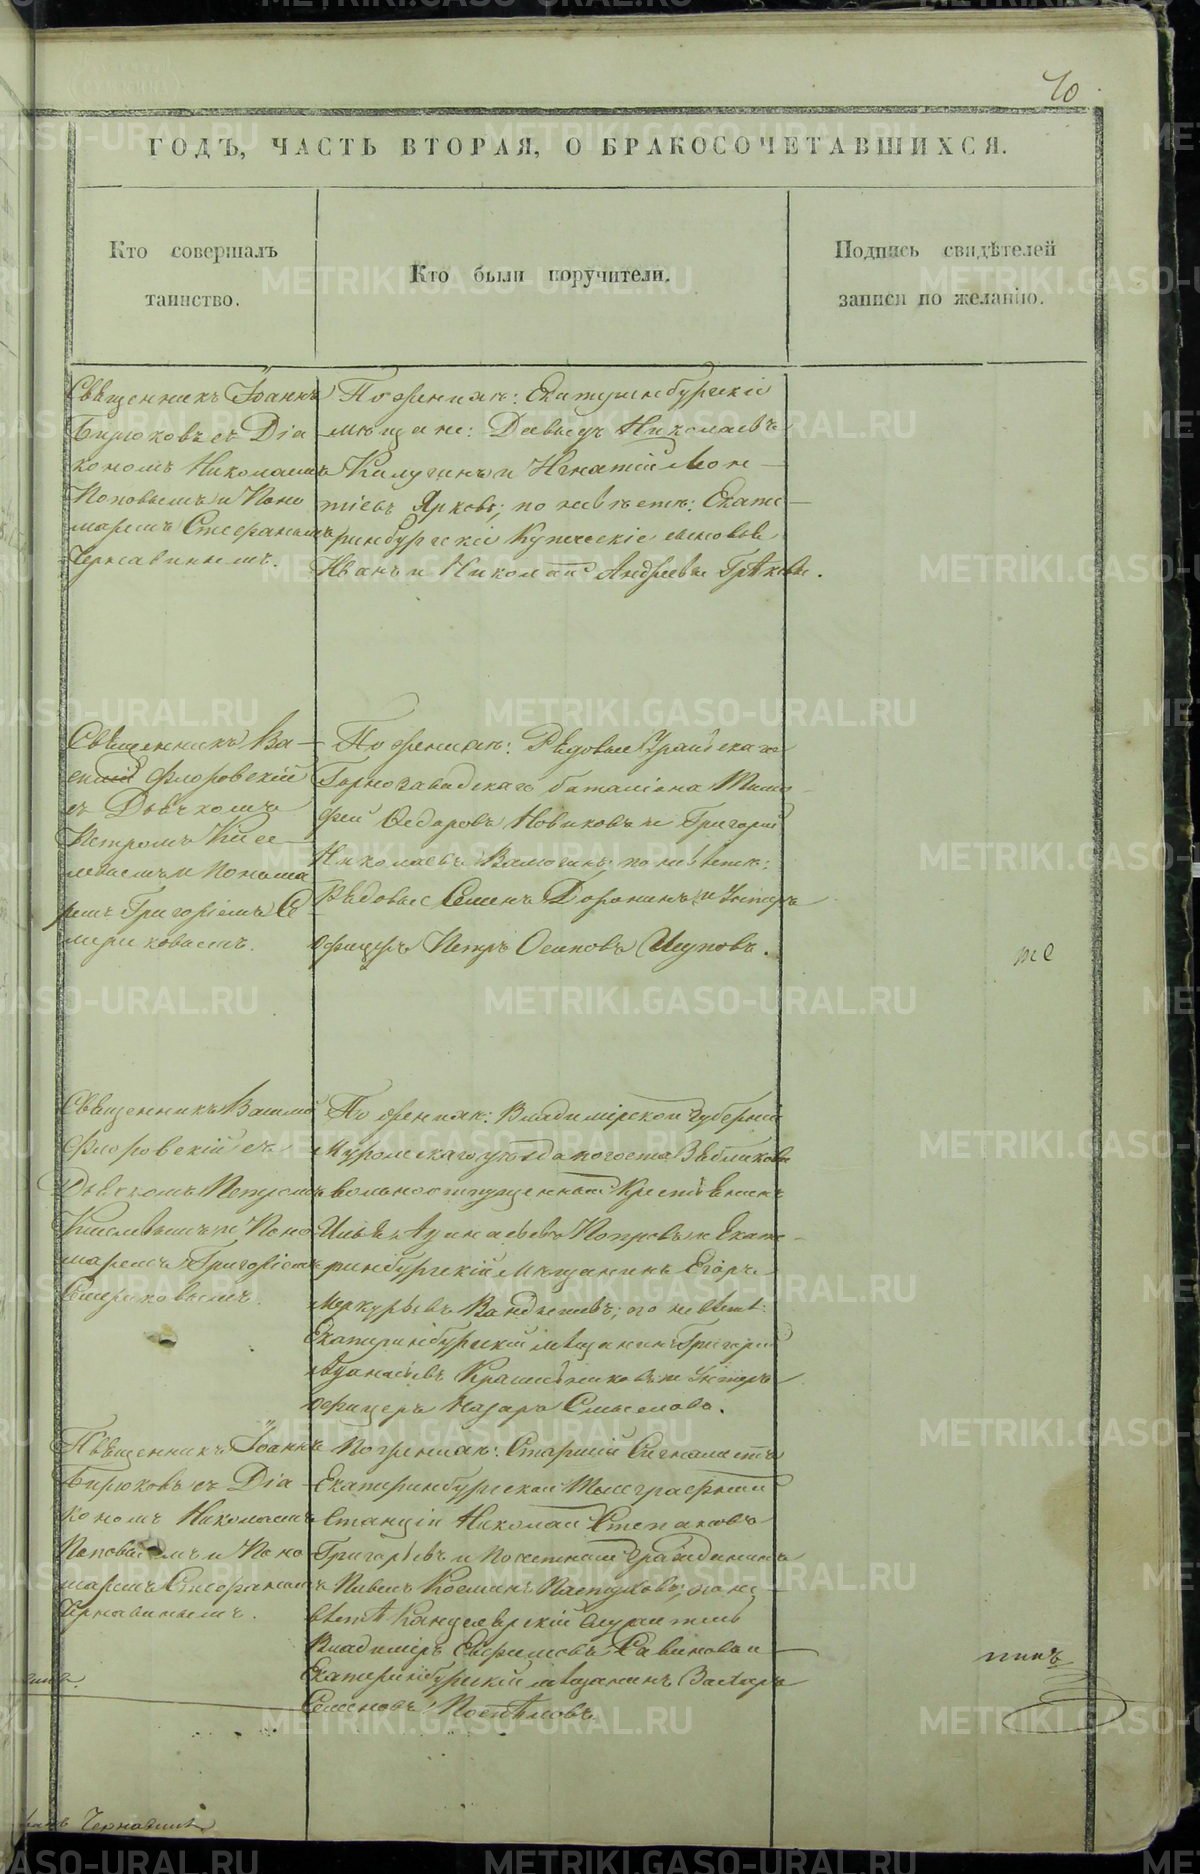 70
ГОДЪ, ЧАСТЬ ВТОРАЯ, О БРАКОСОЧЕТАВШИХСЯ.
Кто совершалъ
таинство.
Кто были поручители.
Подпись свидѣтелей
записи по желанію.
Священникъ Іоаннъ
Бирюковъ съ Діа
кономъ Николаемъ
Поповымъ и Поно
маремъ Стефаномъ
Чернавинымъ.
По женихѣ: Екатеринбургскіе
мѣщане: Давыдъ Николаевъ
Калугинъ и Игнатій Леон
тіевъ Ярковъ; по невѣстѣ: Екате
ринбургскіе Купеческіе сыновья
Иванъ и Николай Андреевы Грѣховы.
Священникъ Ва
силій Флоровскій
съ Дьячкомъ
Петромъ Кисе
левымъ и Понома
ремъ Григоріемъ Се
мериковымъ.
По женихѣ: Рядовые Уральскаго
Горнозаводскаго баталіона Тимо
фей Ѳедоровъ Новиковъ и Григорій
Николаевъ по невѣстѣ:
Рядовые Семенъ Доронинъ и Унтеръ
офицеръ Петръ Осиповъ Шуповъ.
те
Священникъ Василій
Флоровскій съ
Дьячкомъ Петромъ
Киселевымъ и Поно
маремъ Григоріемъ
Семериковымъ.
По женихѣ: Владимірской губерніи
Муромскаго уѣзда погоста Зябликова
вольноотпущенный Крестьянинъ
Илья и Екате
ринбургскій Мѣщанинъ Егоръ
Меркурьевъ по невѣстѣ:
Екатеринбургскій мѣщанинъ Григорій
Аѳанасьевъ Крашенинниковъ и Унтеръ
офицеръ Назаръ Смысловъ.
Священникъ Іоаннъ
Бирюковъ съ Діа
кономъ Николаемъ
Поповымъ и Поно
маремъ Стефаномъ
Чернавинымъ.
По женихѣ: Старшій Сигналистъ
Екатеринбургской Телеграфной
Станціи Николай Степановъ
Григорьевъ и Почетный Гражданинъ
Павелъ Козминъ Пастуховъ; по не
вѣстѣ Канцелярскій Служитель
Владиміръ Евфимовъ Савиновъ и
Екатеринбургскій мѣщанинъ Захаръ
Семеновъ Поспѣловъ
Чернавинъ